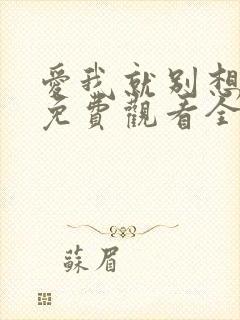 愛我就別想
免費觀看全
蘇眉